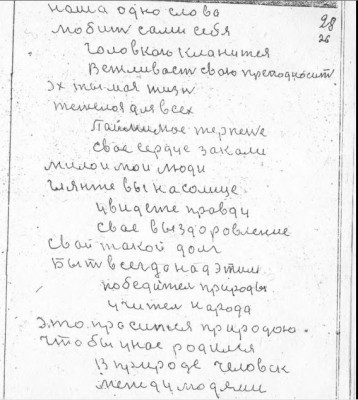 наша одно слова
28
26
любит сами себя
Головкою кланится
Вежливаст свою преподносит
Эх ты моя жизн
тежелоя для всех
Паймимое терпете
свое сердце закали
милои мои люди
гляньте вы на солнце
увидете правду
свае выздоровление
Свой такой долг
Быт всегда над этим
победител природы
учител народа
Это просится природою.
чтобы унас родился
В природе человек
между людями